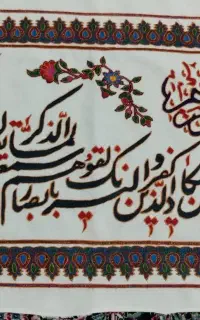 يكاد الذين كفروا ليزلقونك بابصارهم لما سمعوا الذكر